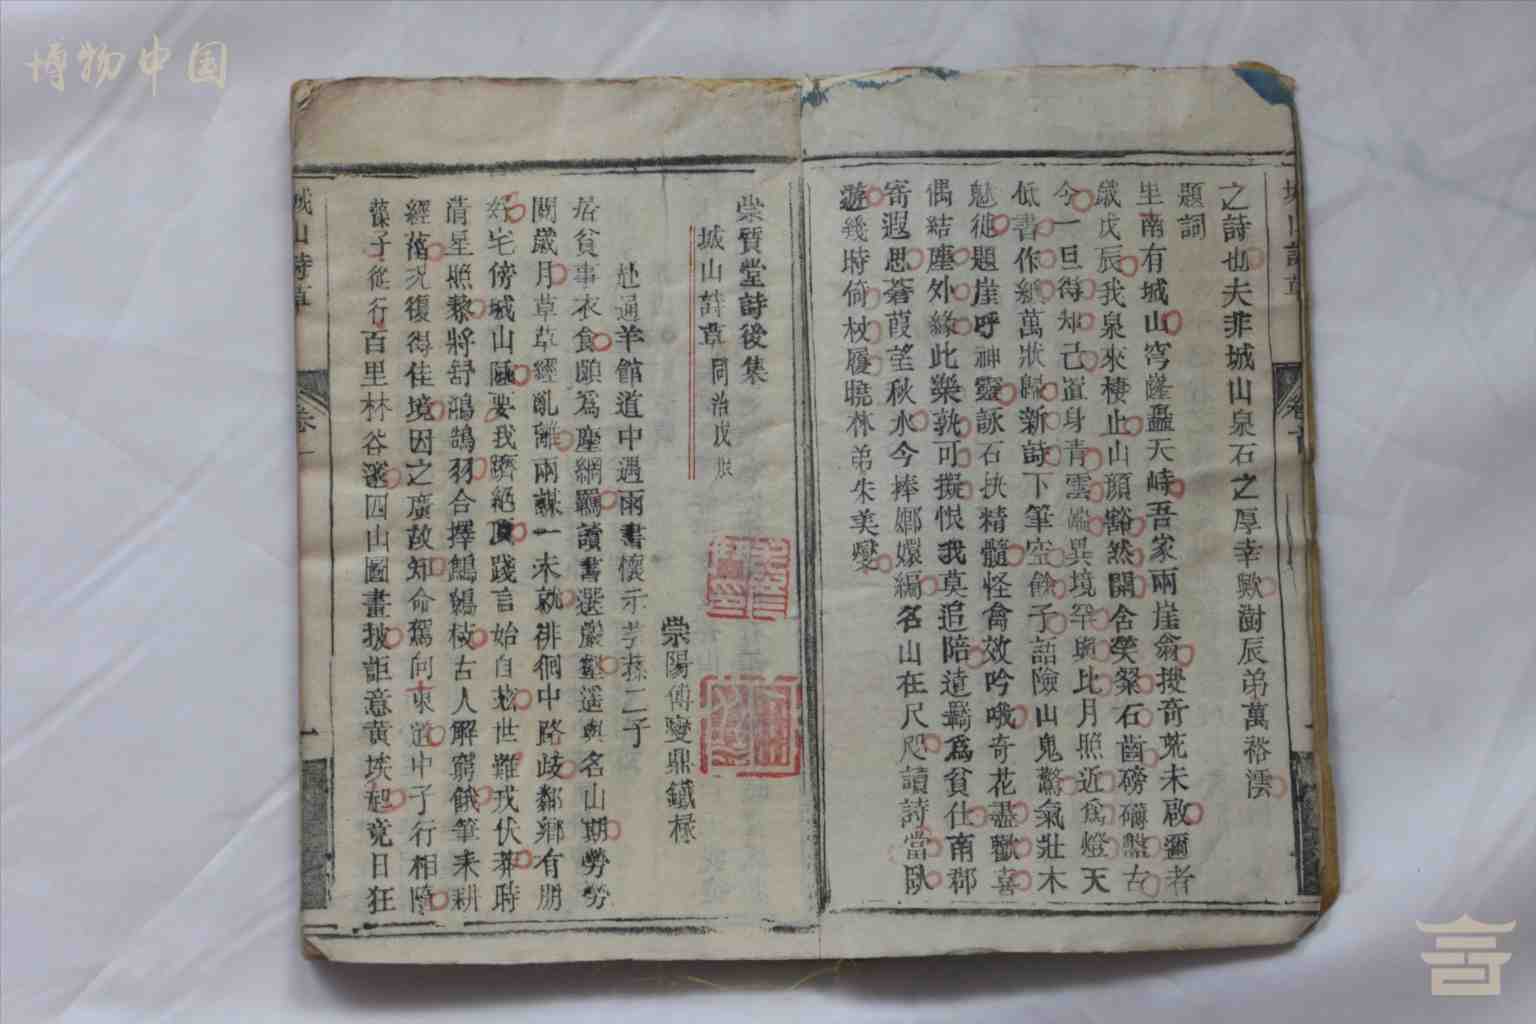 博物中国
之詩也夫非城山泉石之厚幸歟澍辰弟萬裕澐
題詞
里南有城山穹窿矗天峙吾家兩崖翕搜奇荒未啟邇者
歲戊辰我泉來棲止山頂豁然開含笑粲石齒磅礡盤古
今一旦得知己置身青雲端異境罕與比月照近為燈天
低書作紙萬狀歸新詩下筆空餘子語險山鬼驚氣壯木
魅徙題崖呼神靈詠石抉精髓怪禽效吟哦奇花盡歡喜
偶結塵外緣此樂孰可擬恨我莫追陪遠羈為貧仕南郡
寄遐思蒼葭望秋水今捧嫏嬛編名山在尺咫讀詩當臥
遊幾時倚杖履曉林弟朱美燮
城山詩草
卷首
崇質堂詩後集
城山詩草 同治戊辰
崇陽傅燮鼎鐵樵
赴通羊館道中遇雨書懷示孝蓀二子
居貧事衣食頗為塵網羈讀書選巖壑遙與名山期勞勞
關歲月草草經亂離兩謀一未就徘徊中路歧鄰鄉有朋
好宅傍城山陲要我躋絕頂踐言始自茲世難戎伏莽時
荒星照黎將舒鴻鵠羽合擇鷦鷯枝古人解窮餓筆耒耕
經菑況復得佳境因之廣故知命駕向東道中子行相隨
藻子從行百里林谷邃四山圖畫披詎意黃埃起竟日狂
城山詩草
卷一
一